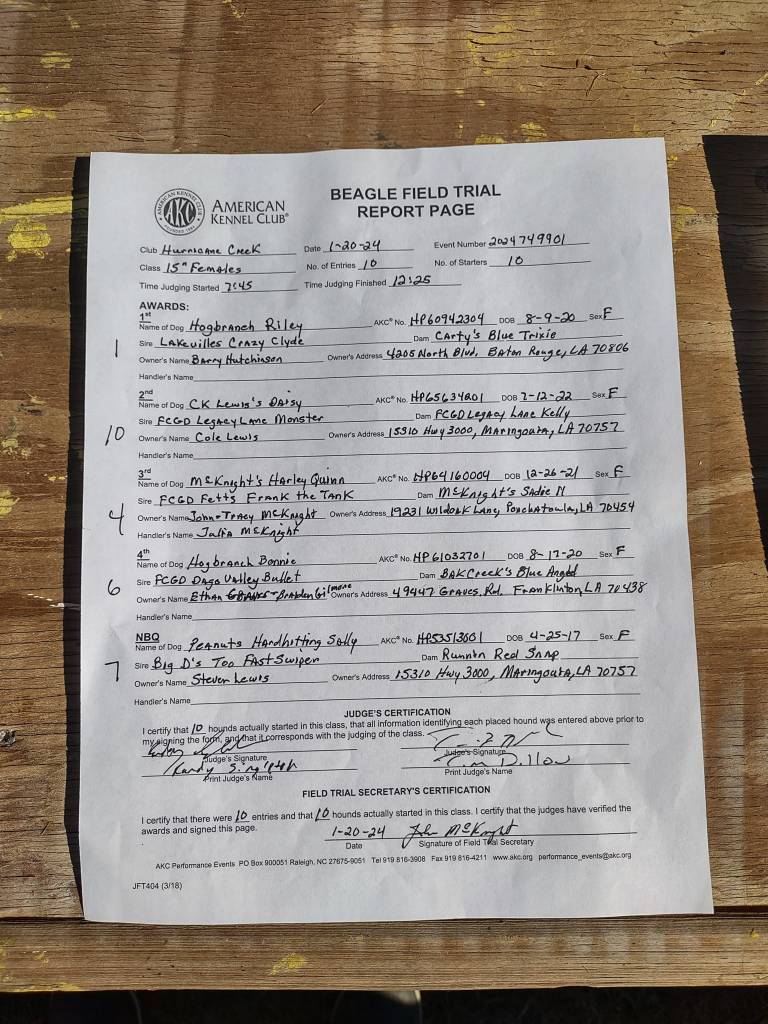 AMERICAN KENNEL CLUB · FOUNDED 1884
AKC
AMERICAN
KENNEL CLUB®
BEAGLE FIELD TRIAL
REPORT PAGE
Club Hurricane Creek Date 1-20-24 Event Number 2024749901
Class 15" Females No. of Entries 10 No. of Starters 10
Time Judging Started 7:45 Time Judging Finished 12:25
AWARDS:
1st
1 Name of Dog Hogbranch Riley AKC® No. HP60942304 DOB 8-9-20 Sex F
Sire Lakevilles Crazy Clyde Dam Carty's Blue Trixie
Owner's Name Barry Hutchinson Owner's Address 4205 North Blvd, Baton Rouge, LA 70806
Handler's Name
2nd
10 Name of Dog CK Lewis's Daisy AKC® No. HP65634201 DOB 7-12-22 Sex F
Sire FCGD Legacy Lane Monster Dam FCGD Legacy Lane Kelly
Owner's Name Cole Lewis Owner's Address 15310 Hwy 3000, Maringouin, LA 70757
Handler's Name
3rd
4 Name of Dog McKnight's Harley Quinn AKC® No. HP64160004 DOB 12-26-21 Sex F
Sire FCGD Fetts Frank the Tank Dam McKnight's Sadie II
Owner's Name John + Tracy McKnight Owner's Address 19231 Wildoak Lane, Ponchatoula, LA 70454
Handler's Name Julia McKnight
4th
6 Name of Dog Hogbranch Bonnie AKC® No. HP61032701 DOB 8-17-20 Sex F
Sire FCGD Dago Valley Bullet Dam BAK Creek's Blue Angel
Owner's Name Ethan Graves + Braiden Gilmore Owner's Address 49447 Graves Rd. Franklinton, LA 70438
Handler's Name
NBQ
7 Name of Dog Peanuts Hardhitting Sally AKC® No. HP53513601 DOB 4-25-17 Sex F
Sire Big D's Too Fast Swiper Dam Runnin Red Snap
Owner's Name Steven Lewis Owner's Address 15310 Hwy 3000, Maringouin, LA 70757
Handler's Name
JUDGE'S CERTIFICATION
I certify that 10 hounds actually started in this class, that all information identifying each placed hound was entered above prior to
my signing the form, and that it corresponds with the judging of the class.
Judge's Signature Judge's Signature
Randy Singleton Tim Dillon
Print Judge's Name Print Judge's Name
FIELD TRIAL SECRETARY'S CERTIFICATION
I certify that there were 10 entries and that 10 hounds actually started in this class. I certify that the judges have verified the
awards and signed this page.
1-20-24 John McKnight
Date Signature of Field Trial Secretary
AKC Performance Events PO Box 900051 Raleigh, NC 27675-9051 Tel 919 816-3908 Fax 919 816-4211 www.akc.org performance_events@akc.org
JFT404 (3/18)